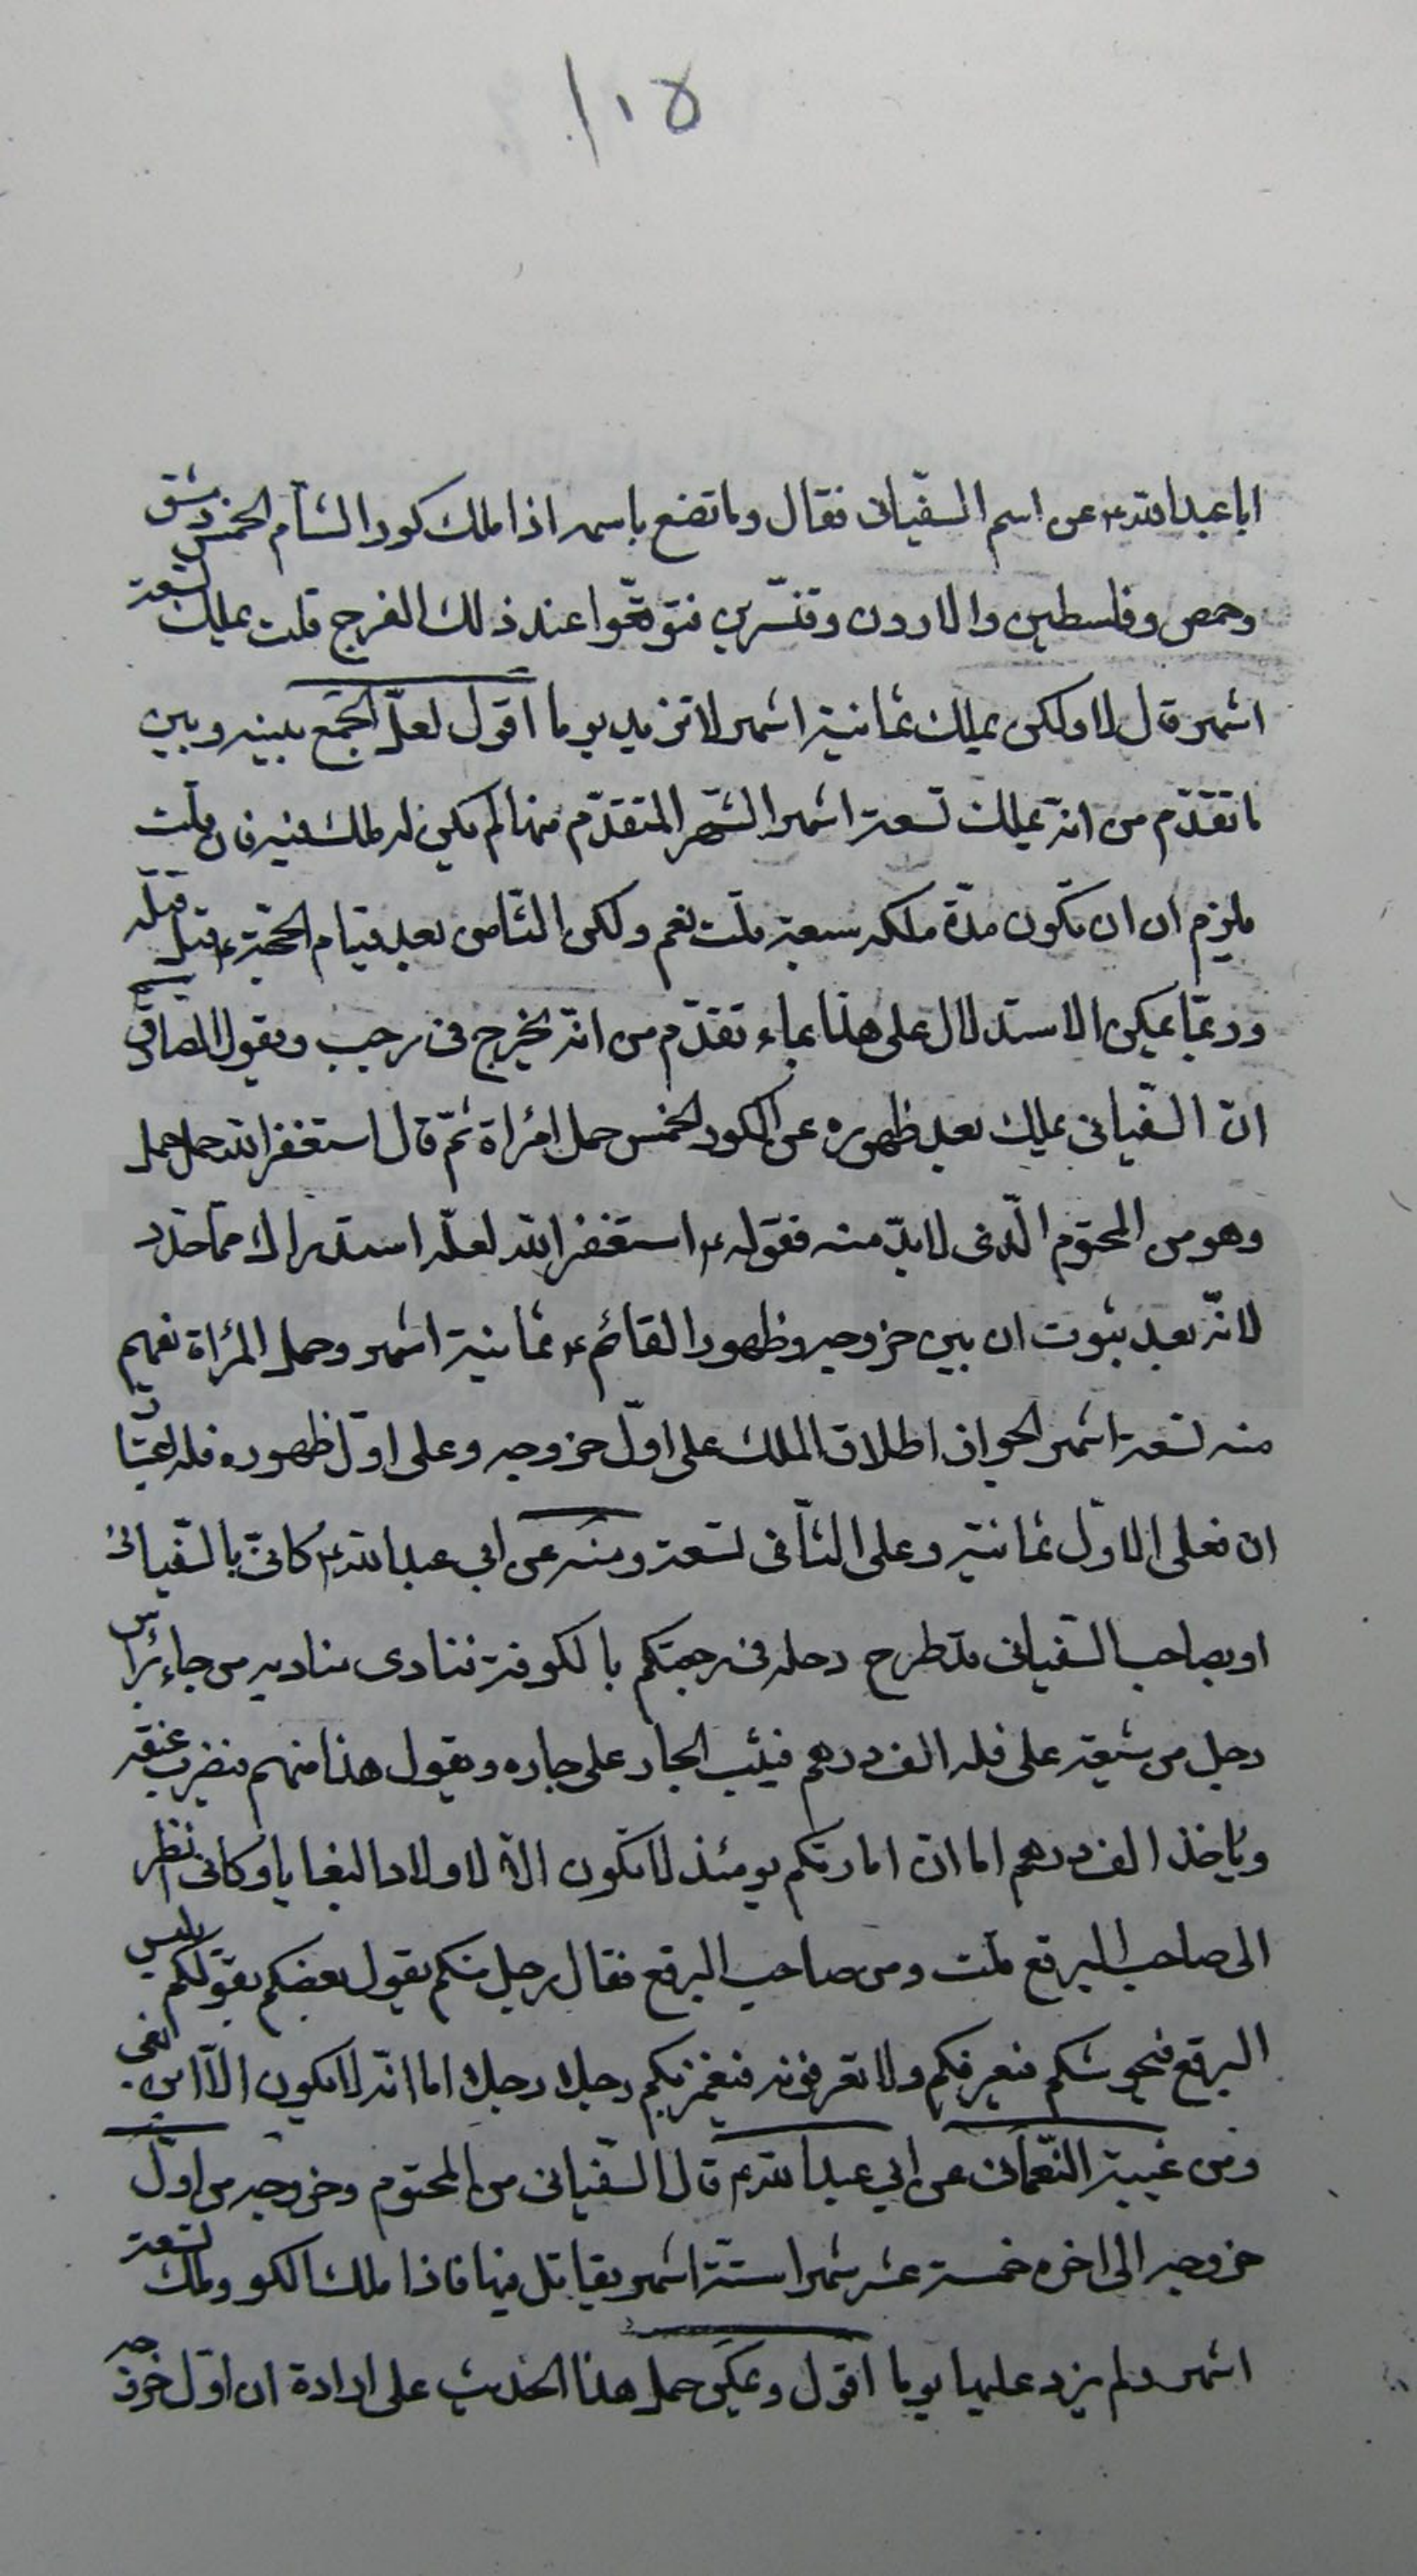 ١١٥
ابا عبد الله ع عن اسم السفّياني فقال وما تصنع باسمه اذا ملك كور الشام الخمس دمشق
وحمص وفلسطين والاردن وقنسّرين فتوقّعوا عند ذلك الفرج قلت يملك تسعة
اشهر قال لا ولكن يملك ثمانية اشهر لا تزيد يوما اقول لعلّ الجمع بينه وبين
ما تقدّم من انّه يملك تسعة اشهر الشّهر المتقدّم منها لم يكن له ملك فيه فان قلت
يلزم ان ان تكون مدّة ملكه سبعة قلت نعم ولكن الثّامن بعد قيام الحجّة ع قبل قتله
وربمّا يمكن الاستدلال على هذا بما تقدّم من انّه يخرج في رجب وبقول الصادق
انّ السّفياني يملك بعد ظهوره على الكور الخمس حمل امرأة ثمّ قال استغفر الله حمل جمل
وهو من المحتوم الّذي لا بدّ منه فقوله ع استغفر الله لعلّه استدراك ممّا حدّد
لانّه بعد ثبوت ان بين خروجه وظهور القائم ع ثمانية اشهر وحمل المرأة يفهم
منه تسعة اشهر لجواز اطلاق الملك على اوّل خروجه وعلى اوّل ظهوره فله اعتبار
ان فعلى الاوّل ثمانية وعلى الثّاني تسعة ومنه عن ابي عبد الله ع كانّي بالسّفياني
او بصاحب السّفياني قد طرح رحله في رحبتكم بالكوفة فنادى مناديه من جاء برأس
رجل من شيعة على فله الف درهم فيثب الجار على جاره ويقول هذا منهم فيضرب عنقه
ويأخذ الف درهم اما انّ امارتكم يومئذ لا تكون الّا لاولاد البغايا وكانّي انظر
الى صاحب البرقع قلت ومن صاحب البرقع فقال رجل منكم يقول بعضكم بقولكم يلبس
البرقع فيحوشكم فيعرفكم ولا تعرفونه فيغمز بكم رجلا رجلا اما انّه لا يكون الّا ابن بغي
ومن غيبة النّعماني عن ابي عبد الله ع قال السّفياني من المحتوم وخروجه من اوّل
خروجه الى اخره خمسة عشر شهرا ستّة اشهر يقاتل فيها فاذا ملك الكور وملك تسعة
اشهر ولم يزد عليها يوما اقول ويمكن حمل هذا الحديث على ارادة ان اوّل خروجه